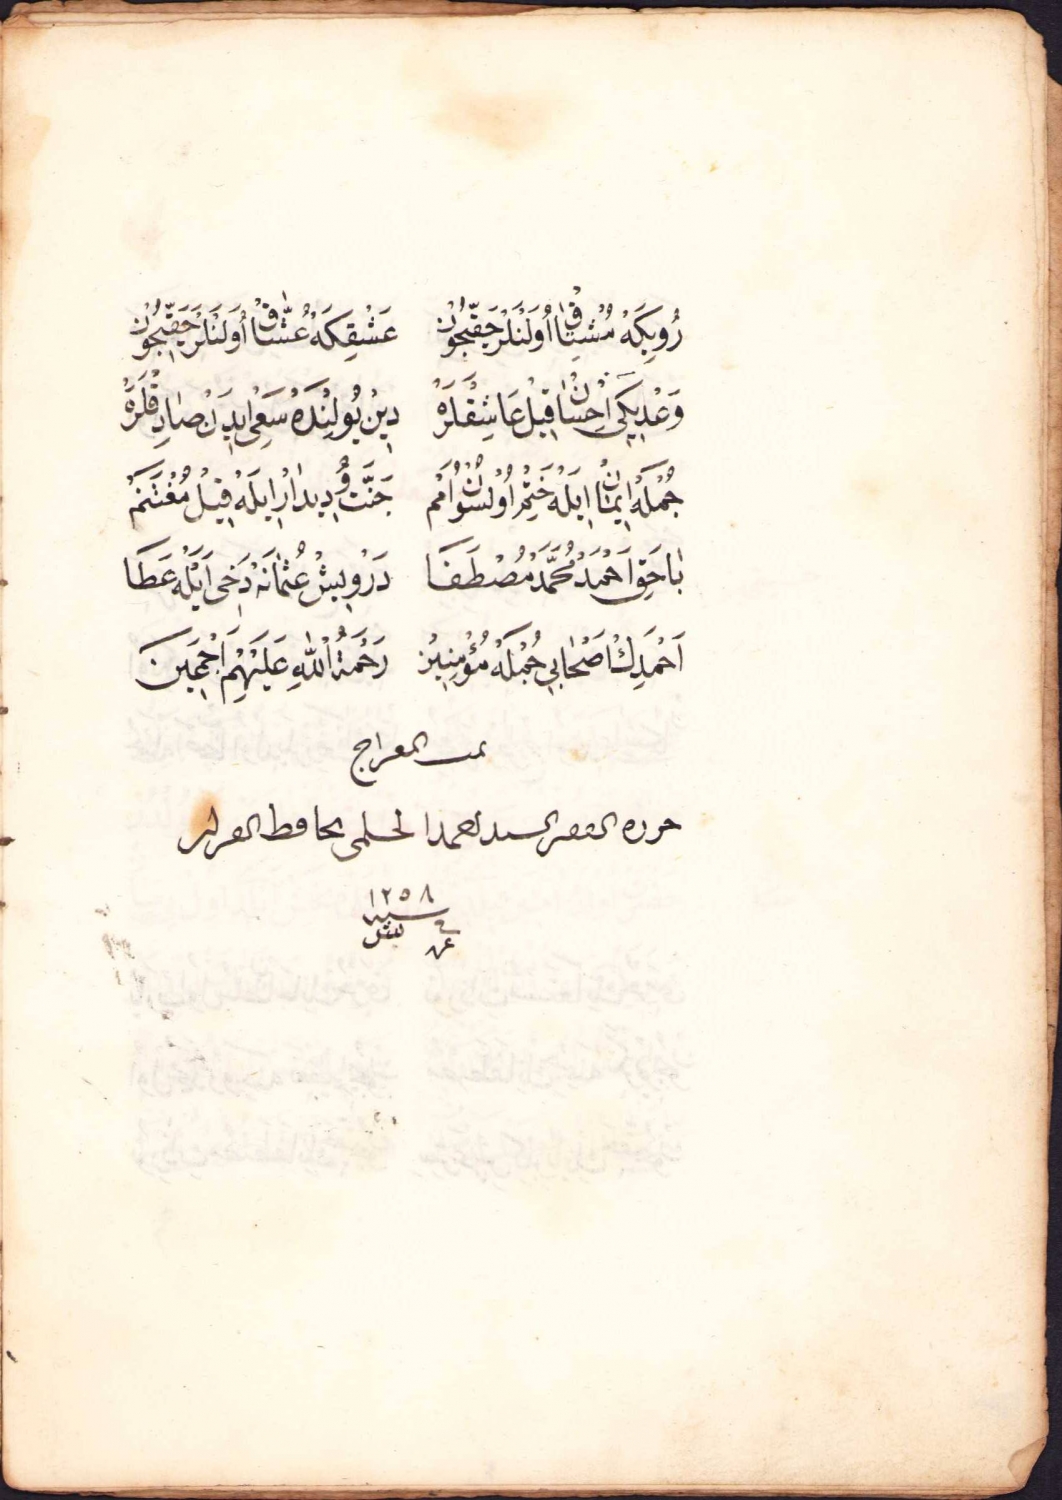 رُويِكَهْ مُشْتَاقْ اُولَنْلَرْ حَقِّيچُونْ عَشْقِكَهْ عُشَّاقْ اُولَنْلَرْ حَقِّيچُونْ
وَعْدِيكِي اِحْسَانْ قِيلْ عَاشِقْلَرَهْ دِينْ يُولِنْدَهْ سَعْی ايدَنْ صَادِقْلَرَهْ
جُمْلَهْ اِيمَانْ اِيلَهْ خَتِمْ اُولْسُونْ اُمَمْ جَنَّتْ وُ دِيدَارْ اِيلَهْ قِيلْ مُغْتَنَمْ
بَاحَقِ اَحْمَدْ مُحَمَّدْ مُصْطَفَا دَرْوِيشْ عُثْمَانَهْ دَخِی اَيْلَهْ عَطَا
اَحْمَدِكْ اَصْحَابِي جُمْلَهْ مُؤْمِنِينْ رَحْمَةُ اللّٰهِ عَلَيْهِمْ اَجْمَعِينَ
تمت المعراج
حرره الفقير السيد احمد الحلمى بحافظ القرا
١٢٥٨